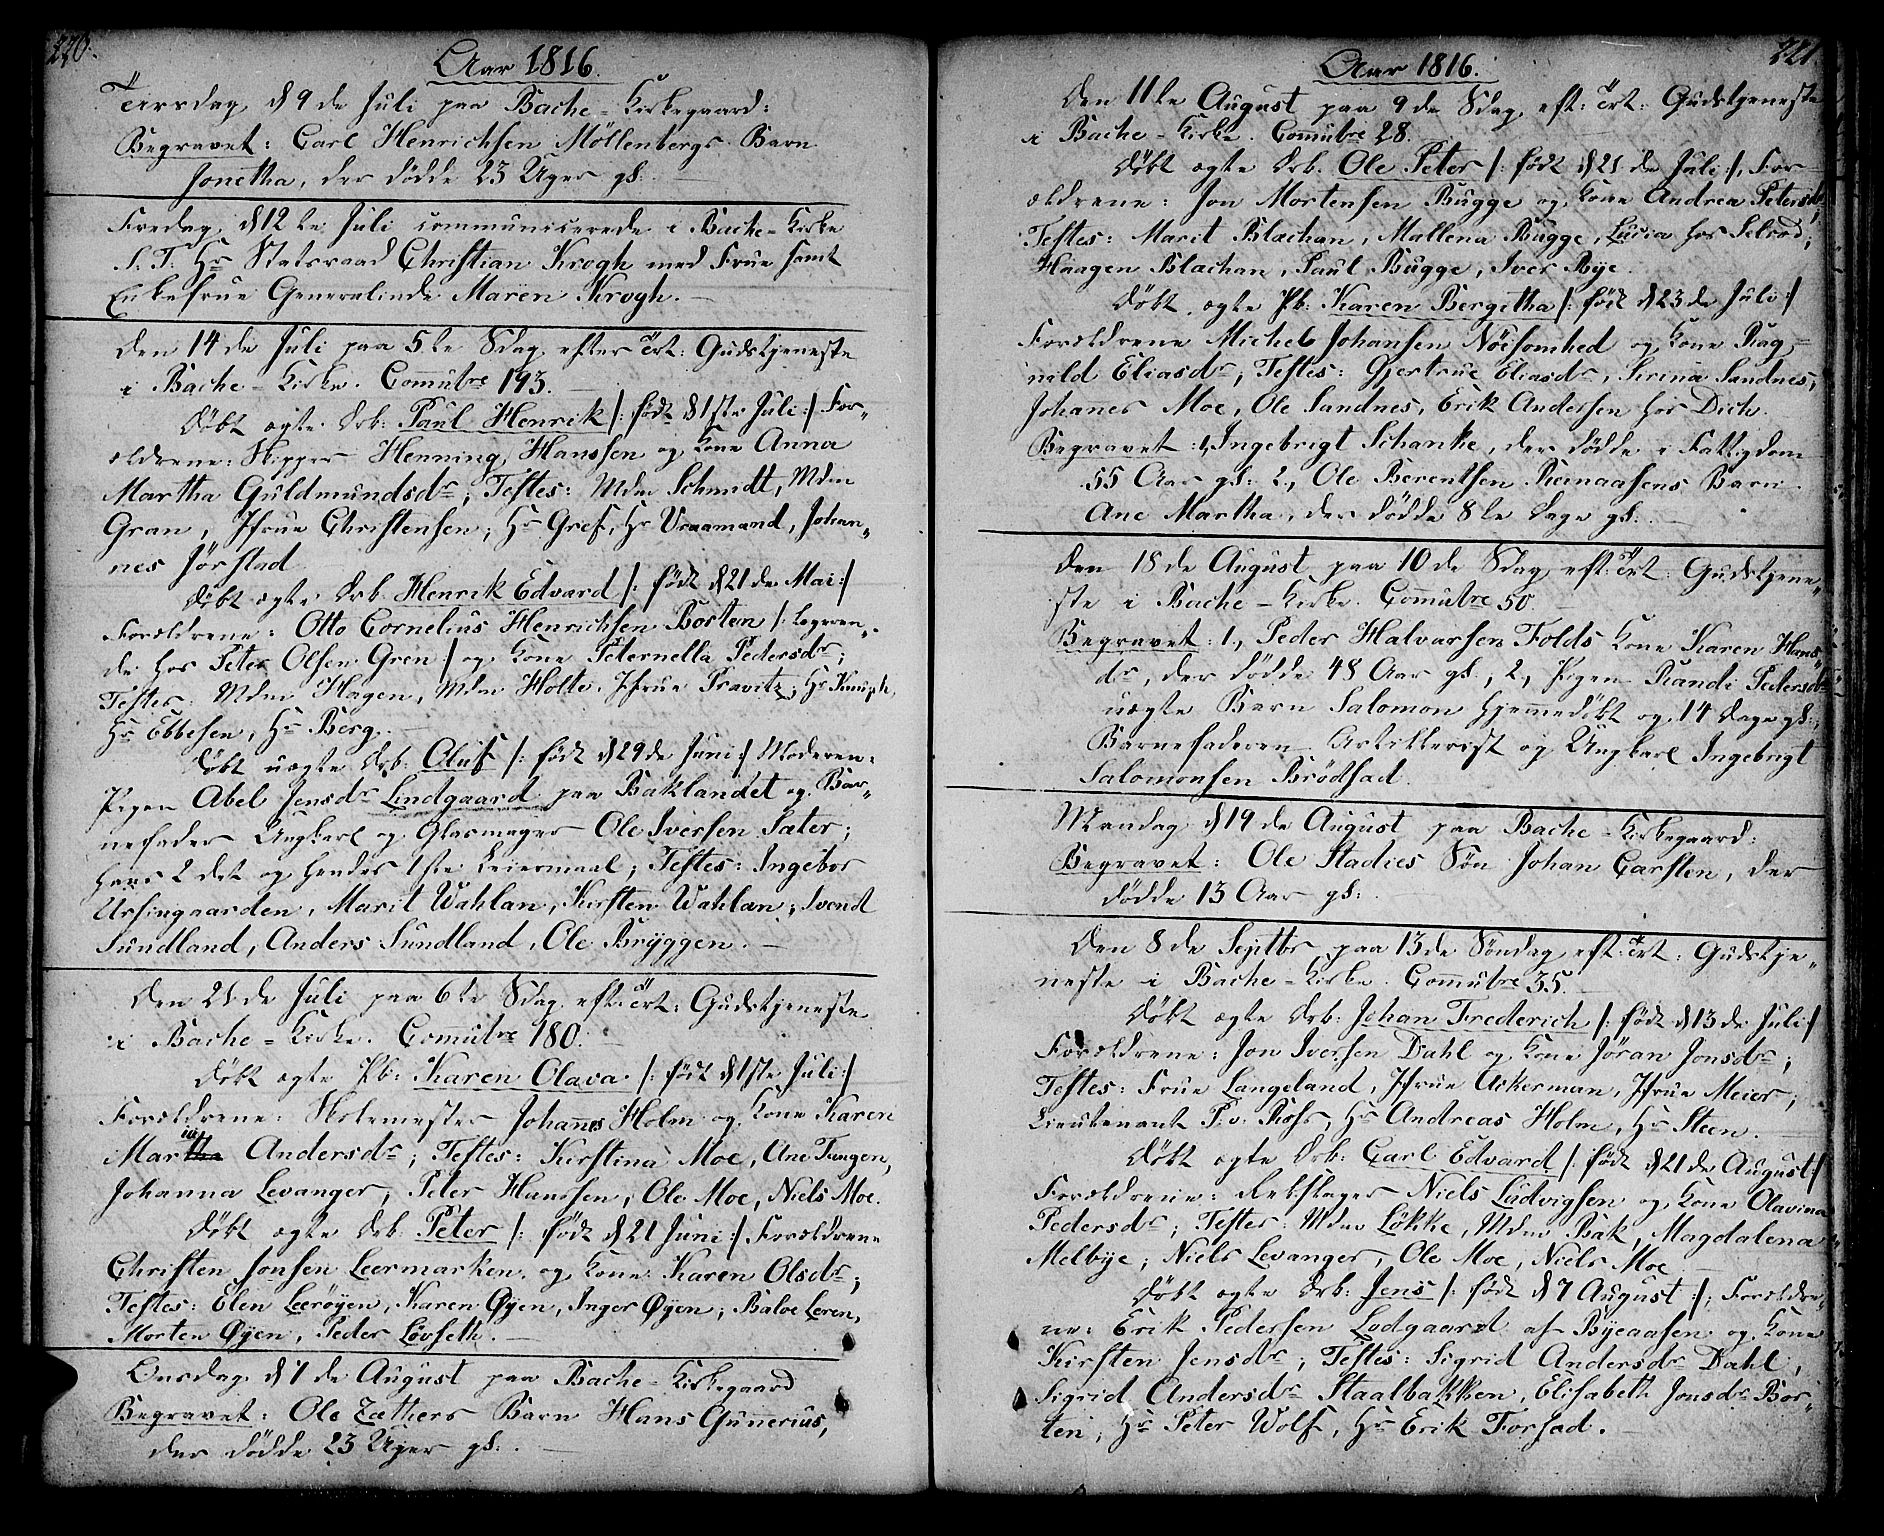 220.
Aar 1816.
Tirsdag d 9de Juli paa Bache-Kirkegaard:
Begravet: Carl Henrichsen Möllenbergs Barn
Jonetha, der dödde 23 Uger gl:
Fredag d 12te Juli communicerede i Bache-Kirke
S. T. Hr Statsraad Christian Krogh med Frue samt
Enkefrue Generalinde Maren Krogh.
Den 14de Juli paa 5te Sdag efter Trt: Gudstjeneste
i Bache-Kirke. Commubre 193.
Döbt ægte Drb: Paul Henrik /: født d 1ste Juli :/ For„
ældrene: Skipper Henning Hanssen og Kone Anna
Martha Guldmundsdr; Testes: Mdm Schmidt, Mdm
Gran, Jfrue Christensen; Hr Gref, Hr Vraamand, Johan„
nes Jörstad
Döbt ægte Drb. Henrik Edvard /: født d 21de Mai :/
Forældrene: Otto Cornelius Henrichsen Bosten /: logeren„
de hos Peter Olsen Gren :/ og Kone Peternella Pedersdr;
Testes: Mdm Hagen, Mdm Holte, Jfrue Pravitz; Hr Kniph,
Hr Ebbesen, Hr Berg.
Döbt uægte Drb: Oluf /: født d 29de Juni :/ Moderen:
Pigen Abel Jensdr Lindgaard paa Baklandet og Bar„
nefader Ungkarl og Glasmager Ole Iversen Sæter;
hans 2det og hendes 1ste Leiermaal; Testes: Ingebor
Ursingaarden, Marit Wahlan, Kirsten Wahlan; Svend
Sundland, Anders Sundland, Ole Bryggen.
Den 21de Juli paa 6te Sdag eft: Trt: Gudstjeneste
i Bache-Kirke. Commubre 180.
Döbt ægte Pb: Karen Olava /: født d 1ste Juli :/
Forældrene: Skolemester Johannes Holm og Kone Karen
Maria Andersdr; Testes: Kirstina Moe, Ane Tungen,
Johanna Levanger; Peter Hanssen, Ole Moe, Niels Moe.
Döbt ægte Drb. Peter /: født d 21 Juni :/ Forældrene
Christen Jonsen Leermarken og Kone Karen Olsdr;
Testes: Elen Leeröyen, Karen Øyen, Inger Øyen; Baloe Leren,
Morten Øyen, Peder Lövseth.
Onsdag d 7de August paa Bache-Kirkegaard
Begravet: Ole Zathers Barn Hans Gunnerius,
der dödde 23 Uger gl:
221
Aar 1816.
Den 11te August paa 9de Sdag eft: Trt: Gudstjeneste
i Bache-Kirke. Commubre 28.
Döbt ægte Drb. Ole Peter /: født d 21de Juli :/, For
ældrene: Jon Mortensen Bugge og Kone Andrea Petersdr
Testes: Marit Blachan, Mallena Bugge, Lucia hos Selvad;
Haagen Blachan, Paul Bugge, Iver Bye
Döbt ægte Pb: Karen Bergitha /: født d 23de Juli :/
Forældrene Michel Johansen Nöisomhed og Kone Rag„
nild Eliasdr; Testes: Gjertrue Eliasdr, Kirina Sandnes;
Johanes Moe, Ole Sandnes, Erik Andersen hos Dich
Begravet: 1, Ingebrigt Schanke, der dödde i Fattigdom
55 Aar gl: 2, Ole Berentsen Reinaasens Barn
Ane Martha, der dödde 8te Dage gl:
Den 18de August paa 10de Sdag eft: Trt: Gudstjene„
ste i Bache-Kirke. Commubre 50.
Begravet: 1, Peder Halvarsen Folds Kone Karen Hans„
dr, der dödde 48 Aar gl, 2, Pigen Randi Pedersdr
uægte Barn Salomon hjemmedöbt og 14 Dage gl:;
Barnefaderen Artillerist og Ungkarl Ingebrigt
Salomonsen Brödsad
Mandag d 19de August paa Bache-Kirkegaard:
Begravet: Ole Stadies Sön Johan Carsten, der
dödde 13 Aar gl:
Den 8de Septbr paa 13de Söndag eft: Trt: Gudstje„
neste i Bache-Kirke. Commubre 35.
Döbt ægte Drb: Johan Frederich /: født d 13de Juli :/
Forældrene: Jon Iversen Dahl og Kone Jöran Jonsdr;
Testes: Frue Langeland, Jfrue Ackerman, Jfrue Meier;
Lieutenant P. v. Rohs, Hr Andreas Holm, Hr Steen.
Döbt ægte Drb. Carl Edvard /: født d 21de August :/
Forældrene: Rebslager Niels Ludvigsen og Kone Olavina
Pedersdr; Testes: Mdm Lökke, Mdm Bak, Magdalena
Melbye; Niels Levanger, Ole Moe, Niels Moe
Döbt ægte Drb: Jens /: født d 7 August :/; Forældre„
ne: Erik Pedersen Lodgaard af Byeaasen og Kone
Kirsten Jensdr; Testes: Sigrid Andersdr Dahl,
Sigrid Andersdr Staalbakken, Elisabeth Jonsdr Bor„
ten; Hr Peter Wolf, Hr Erik Forsad.